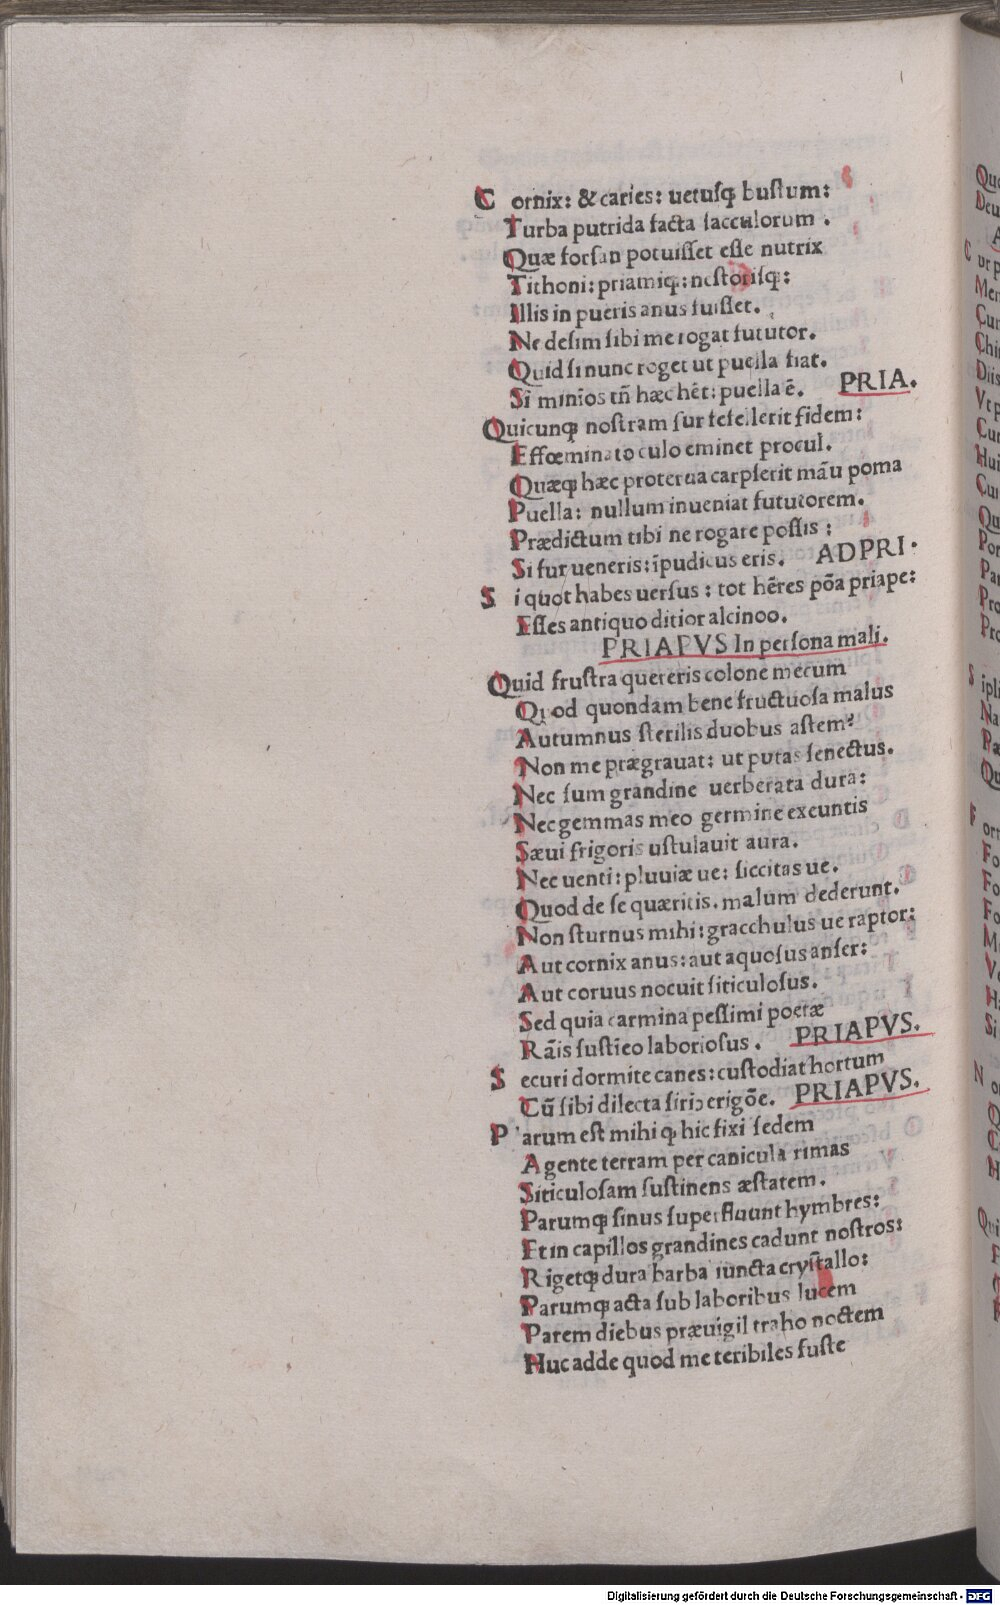 C ornix: & caries: uetuſqꝫ buſtum:
Turba putrida facta ſacculorum .
Quæ forſan potuiſſet eſſe nutrix
Tithoni: priamiqꝫ: neſtoriſqꝫ:
Illis in pueris anus fuiſſet.
Ne deſim ſibi me rogat fututor.
Quid ſi nunc roget ut puella fiat.
Si minios tñ hæc hēt: puella ē. PRIA.
Quicunqꝫ noſtram fur fefellerit fidem:
Effœminato culo eminet procul.
Quæqꝫ hæc proterua carpſerit māu poma
Puella: nullum inueniat fututorem.
Prædictum tibi ne rogare poſſis :
Si fur ueneris: ĩpudicus eris. AD PRI.
S i quot habes uerſus : tot hēres põa priape:
Eſſes antiquo ditior alcinoo.
PRIAPVS In perſona mali.
Quid fruſtra quereris colone mecum
Quod quondam bene fructuoſa malus
Autumnus ſterilis duobus aſtem?
Non me prægrauat: ut putas ſenectus.
Nec ſum grandine uerberata dura:
Nec gemmas meo germine exeuntis
Sæui frigoris uſtulauit aura.
Nec uenti: pluuiæ ue: ſiccitas ue.
Quod de ſe quæritis. malum dederunt.
Non ſturnus mihi: gracchulus ue raptor:
Aut cornix anus: aut aquoſus anſer:
Aut coruus nocuit ſiticuloſus.
Sed quia carmina peſſimi poetæ
Rāis ſuſtieo laborioſus . PRIAPVS.
S ecuri dormite canes: cuſtodiat hortum
Cū ſibi dilecta ſiriꝰ erigõe. PRIAPVS.
P arum eſt mihi qꝫ hic fixi ſedem
Agente terram per canicula rimas
Siticuloſam ſuſtinens æſtatem.
Parumqꝫ ſinus ſuperfluunt hymbres:
Et in capillos grandines cadunt noſtros:
Rigetqꝫ dura barba iuncta cryſtallo:
Parumqꝫ acta ſub laboribus lucem
Parem diebus præuigil traho noctem
Huc adde quod me teribiles fuſte
Digitalisierung gefördert durch die Deutsche Forschungsgemeinschaft - DFG